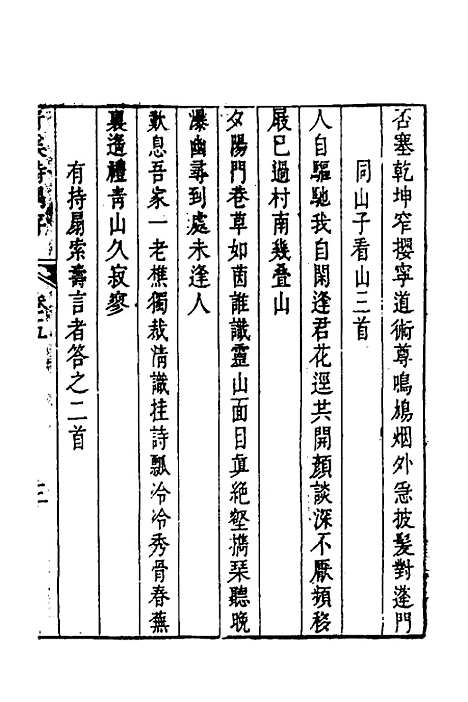 否塞乾坤窄攖寧道術尊鳴鳩烟外急披髮對蓬門
同山子看山三首
人自驅馳我自閑逢君花逕共開顏談深不厭頻移
屐已過村南幾叠山
夕陽門巷草如茵誰識靈山面目眞絶壑携琹聽晚
瀑幽尋到處未逢人
歎息吾家一老樵獨裁清識挂詩瓢冷冷秀骨春蕪
裏遙禮青山久寂寥
有持扇索壽言者答之二首